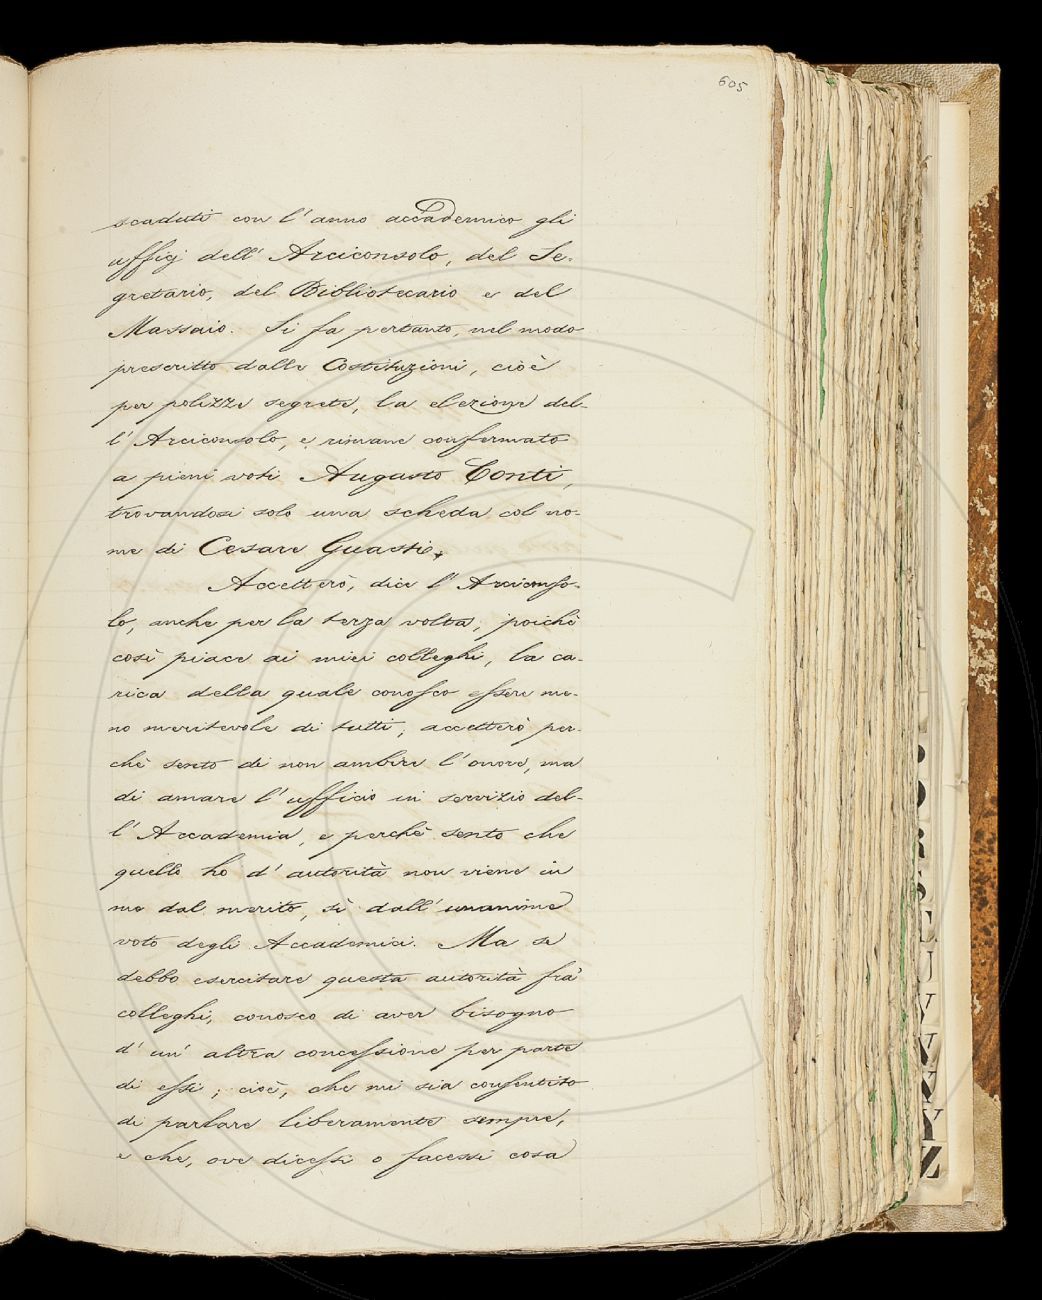 605
scaduti con l'anno accademico gli
uffici dell'Arciconsolo, del Se-
gretario, del Bibliotecario e del
Massaio. Si fa pertanto, nel modo
prescritto dalle Costituzioni, cioè
per polizze segrete, la elezione del-
l'Arciconsolo, e rimane confermato
a pieni voti Augusto Conti,
trovandosi solo una scheda col no-
me di Cesare Guasti.
Accetterò, dice l'Arciconso-
lo, anche per la terza volta, poichè
così piace ai miei colleghi, la ca-
rica della quale conosco essere me-
no meritevole di tutti; accetterò per-
chè sento di non ambire l'onore, ma
di amare l'ufficio in servizio del-
l'Accademia, e perchè sento che
quello ho d'autorità non viene in
me dal merito, sì dall'unanime
voto degli Accademici. Ma se
debbo esercitare questa autorità fra'
colleghi, conosco di aver bisogno
d'un'altra concessione per parte
di essi; cioè, che mi sia consentito
di parlare liberamente sempre,
e che, ove dicessi o facessi cosa
R
S
T
U
V
X
Y
Z